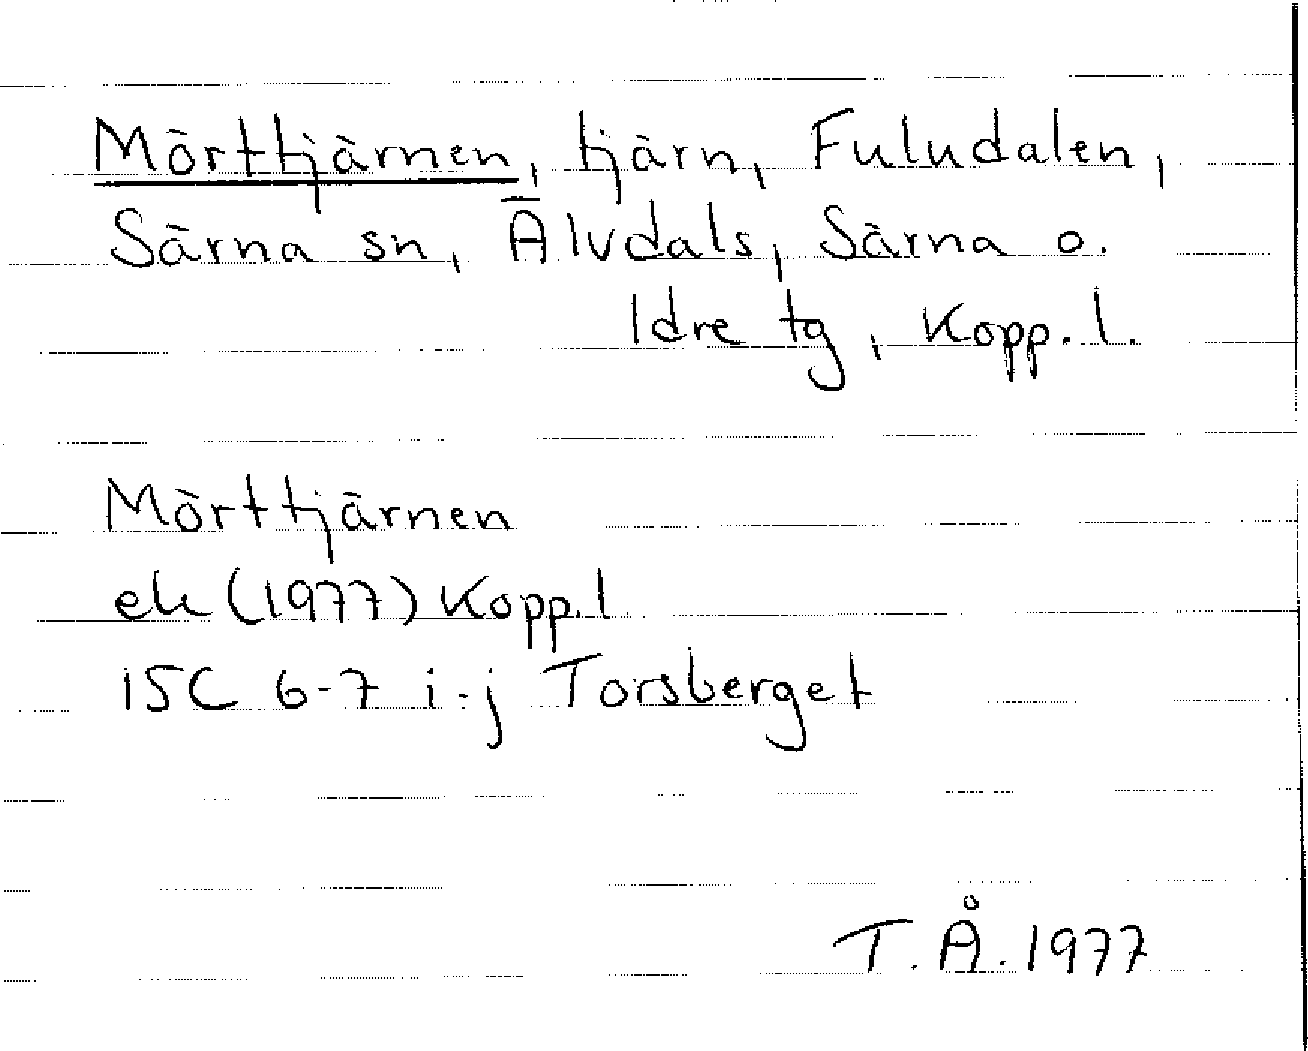 Mörttjärnen, tjärn, Fuludalen,
Särna sn, Älvdals, Särna o.
Idre tg, Kopp. l.
Mörttjärnen
ek (1977) Kopp. l
15C 6-7 i-j Torsberget
T. Å. 1977